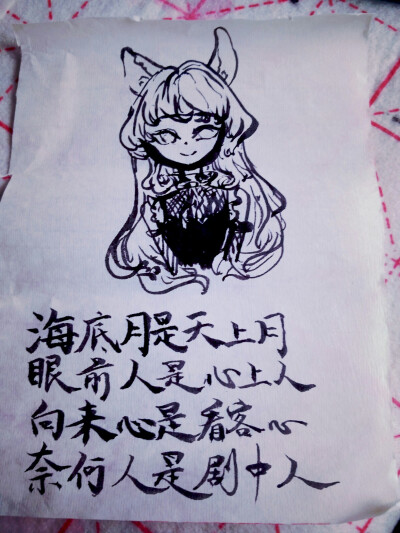 海底月是天上月
眼前人是心上人
向来心是看客心
奈何人是剧中人